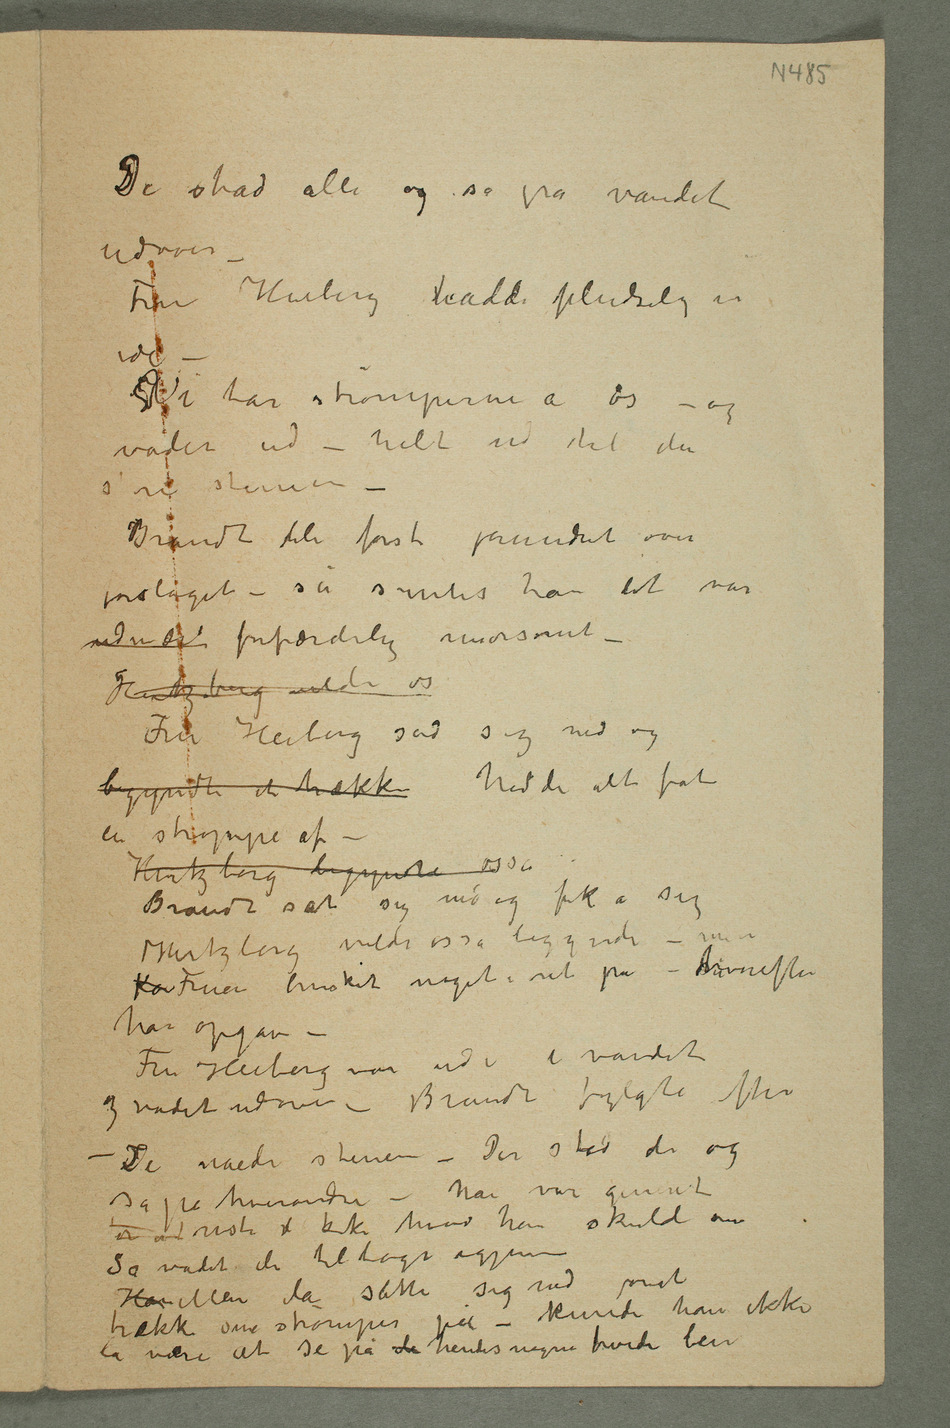 N485
De stod alle og så på vandet
udover –
Fru Heiberg hadde pludselig en
ide –
Vi tar strømperne a os – og
vader ud – helt ud til den
store stenen –
Brandt ble først forundret over
forslaget – så syntes han det var
forfærdelig morsomt –
Hertzberg vilde os
Fru Heiberg sad sig ned og
begyndte at trække hadde alt fåt
en strømpe af –
Hertzberg begyndte osså
Brandt sat sig ned og fik a sig
Hertzberg vilde osså begynde – men
Fruen bemærket noget i ret på – hvorefter
han opgav –
Fru Heiberg var ude i vandet
og vadet udover – Brandt fylgte efter
– De nåede stenen – Der stod de og
så på hverandre – han var generet
viste ikke hvad han skulde om
Så vadet de tilbage igjen
Han Men da satte sig ned for at
trække sine strømper på – kunde han ikke
la være at se på de hendes nøgne hvide ben